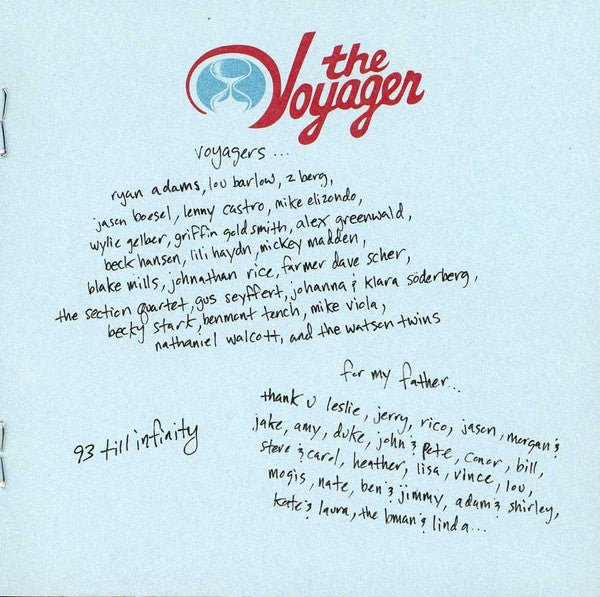 the
Voyager
voyagers...
ryan adams, lou barlow, z berg,
jason boesel, lenny castro, mike elizondo,
wylie gelber, griffin goldsmith, alex greenwald,
beck hansen, lili haydn, mickey madden,
blake mills, johnathan rice, farmer dave scher,
the section quartet, gus seyffert, johanna & klara söderberg,
becky stark, benmont tench, mike viola,
nathaniel walcott, and the watson twins
for my father...
thank u leslie, jerry, rico, jason, morgan &
jake, amy, duke, john & pete, conor, bill,
steve & carol, heather, lisa, vince, lou,
mogis, nate, ben & jimmy, adam & shirley,
kate & laura, the bman & linda...
93 till infinity